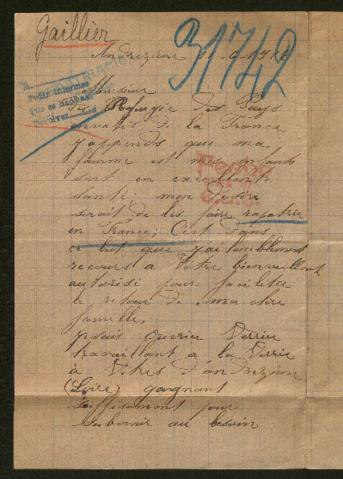 Gaillier
31742
Andrezieux
Monsieur
Refugie des Pays
envahit de la France
j'apprends que ma
femme est mes enfants
sont en excellente
santé mon désir
serait de les faire rapatrie
en France; C'est dans
ce but que j'ai humblement
recours a Votre bienveillante
autorité pour facilité
le retour de ma chère
famille,
je suit ouvrier Verrier
travaillant a la Verrie
à Vitres d'andrezieux
(Loire) gagnant
suffisamment pour
subvenir au besoin